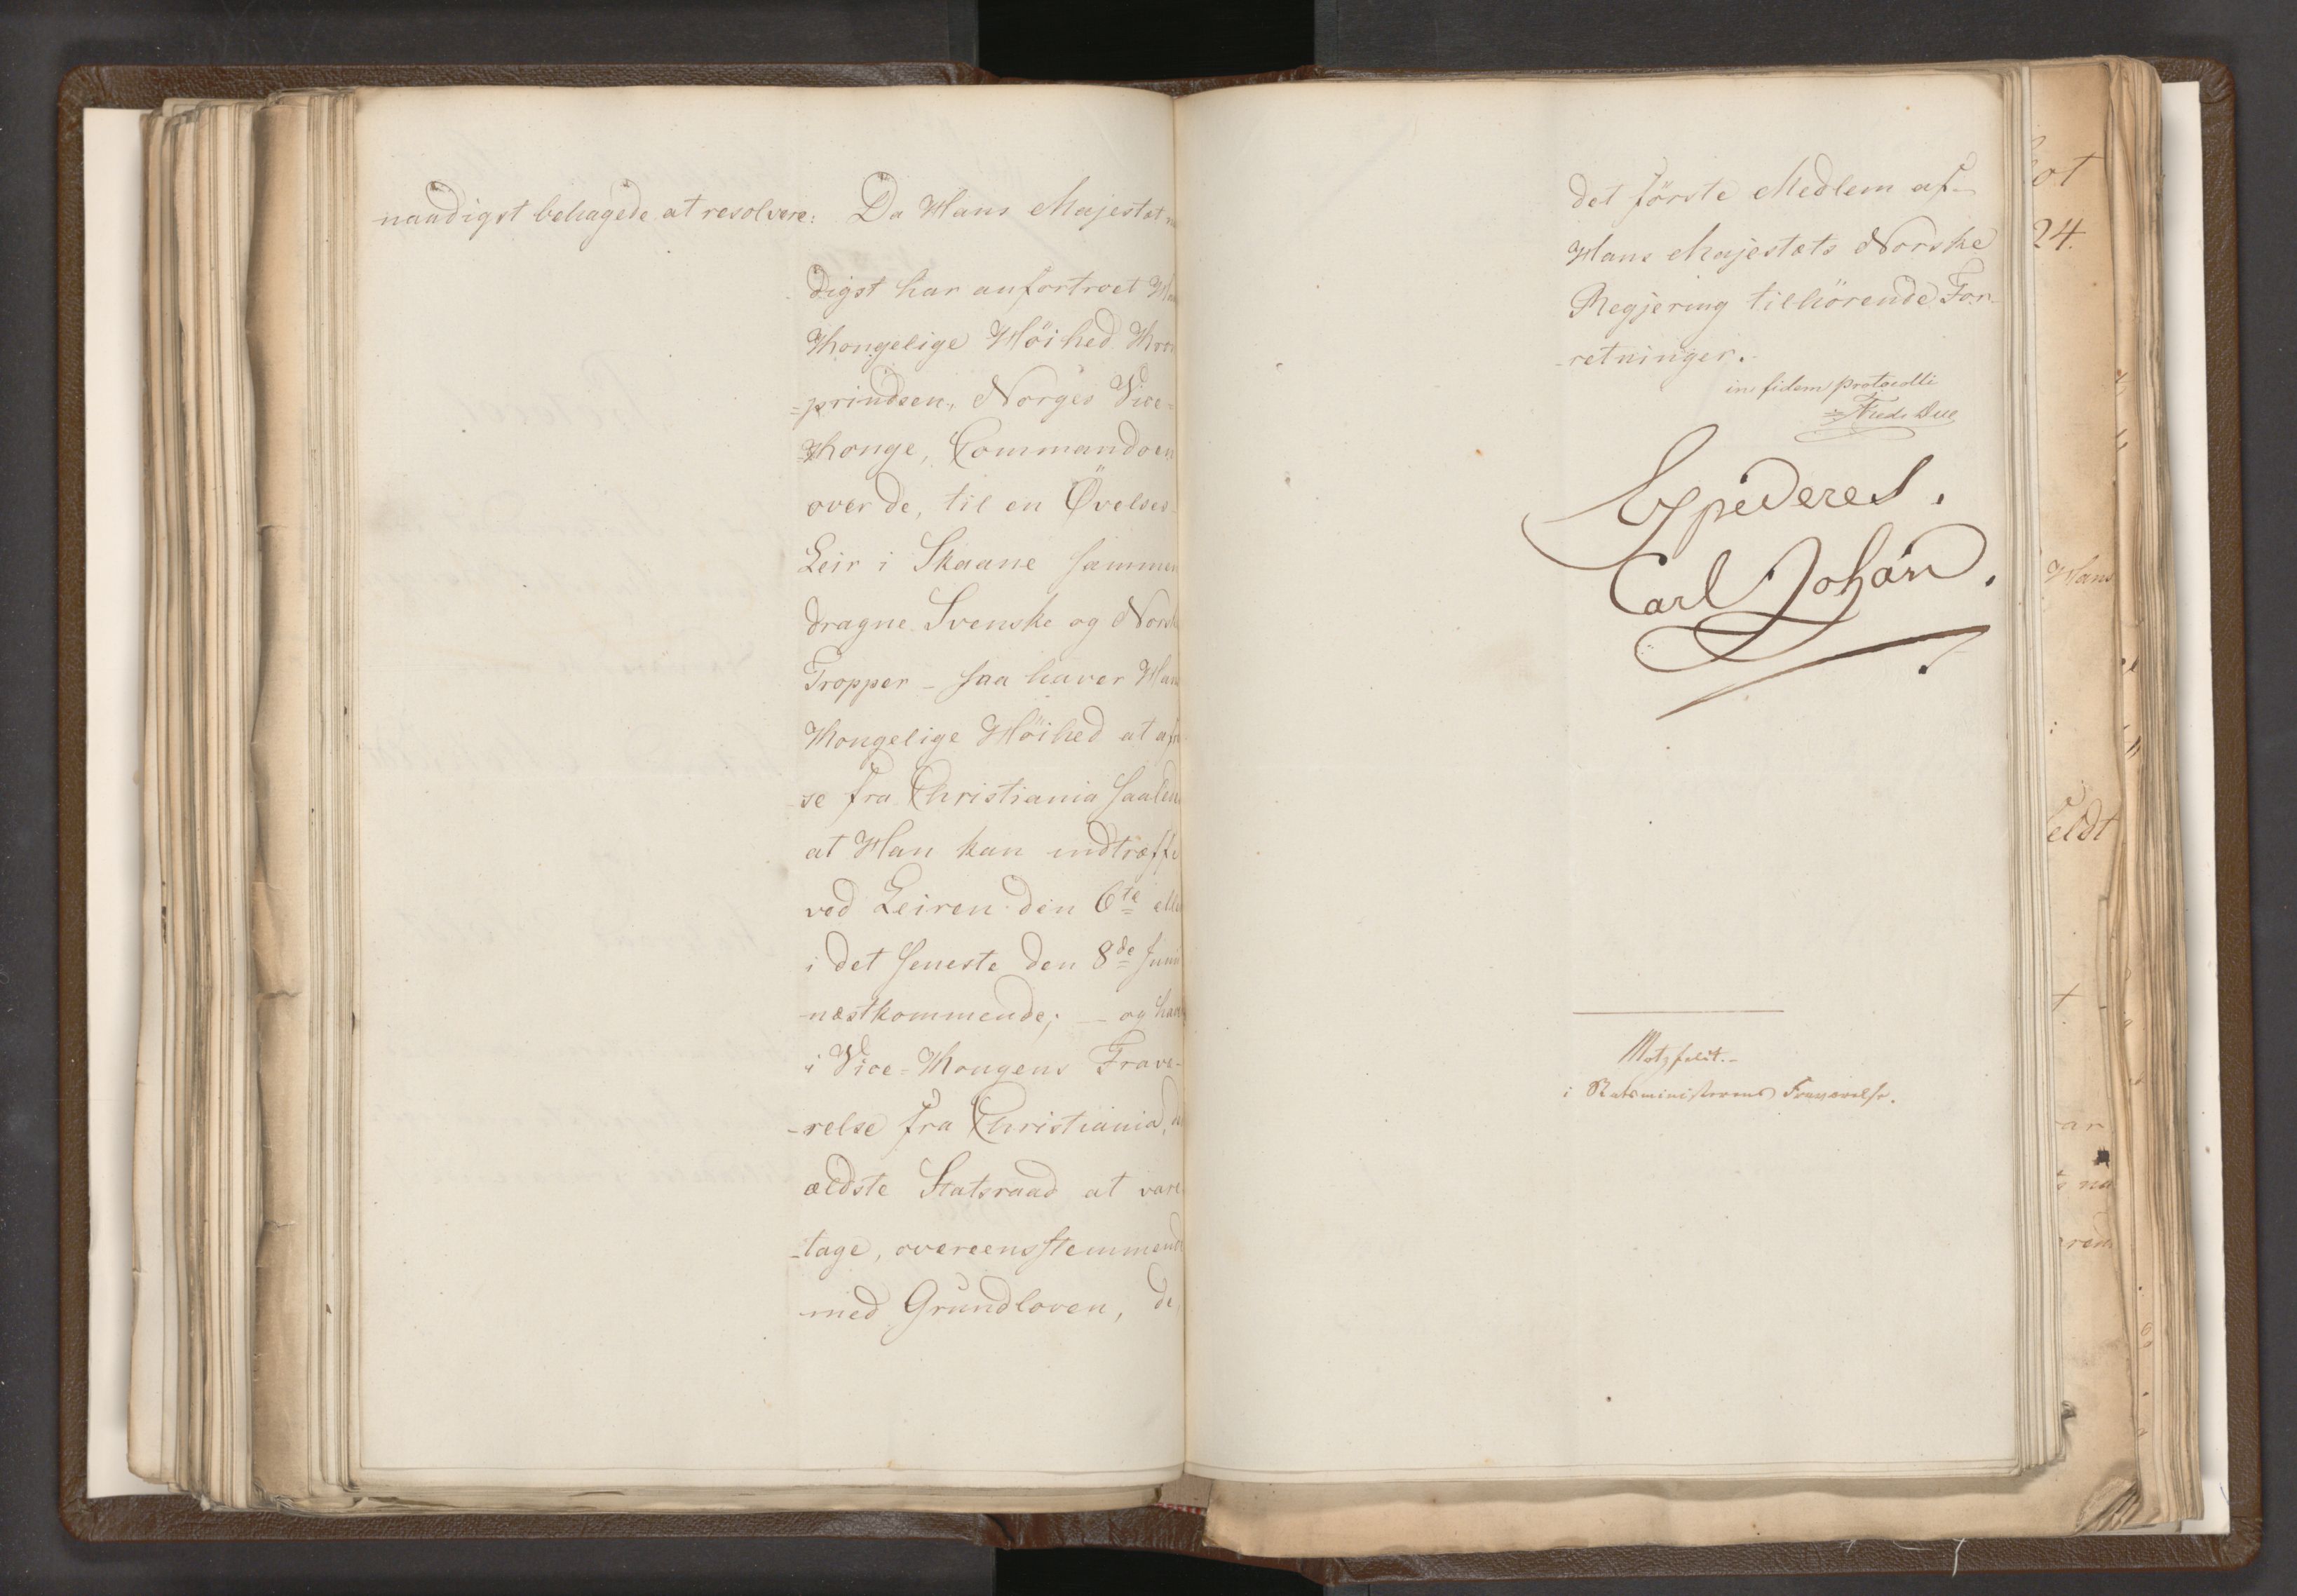 naadigst behagede at resolvere: Da Hans Majestæt
digst har anfortroet
Kongelige Höihed
-prindsen, Norges Vice-
Konge, Commandoen
over de, til en Øvelses-
Leir i Skaane sammen
dragne Svenske og
Tropper – saa haver
Kongelige Höihed at
se fra Christiania
at Han kan indtræffe
ved Leiren den 6te
i det seneste den 8de
næstkommende; – og
i Vice-Kongens Fravæ-
-relse fra Christiania,
ældste Statsraad at vare
-tage, overeensstemmende
med Grundloven, de
det förste Medlem af
Hans Majestæts Norske
Regjering tilhörende For-
retninger.
in fidem protocolli
Fredr Due
Expederes.
Carl Johan.
Motzfeldt.-
i Statsministerens Fraværelse.
24.
Hans
eldt